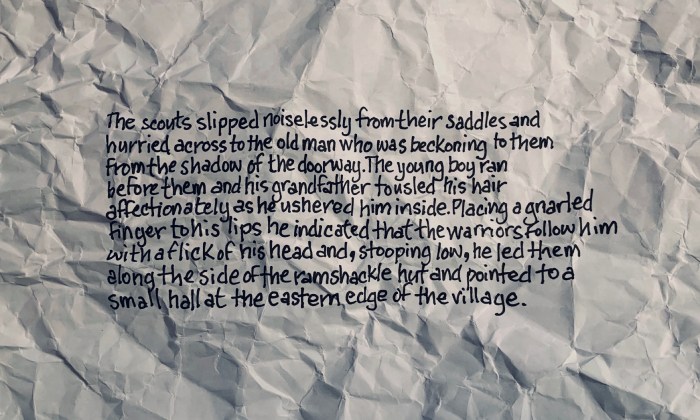 The scouts slipped noiselessly from their saddles and
hurried across to the old man who was beckoning to them
from the shadow of the doorway. The young boy ran
before them and his grandfather tousled his hair
affectionately as he ushered him inside. Placing a gnarled
finger to his lips he indicated that the warriors follow him
with a flick of his head and, stooping low, he led them
along the side of the ramshackle hut and pointed to a
small hall at the eastern edge of the village.